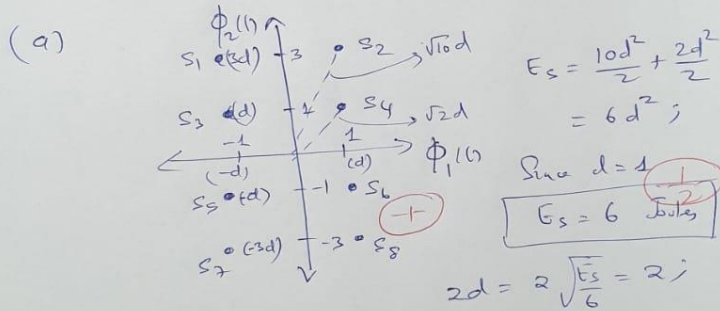 (a)
ϕ₂(t)
S₁ (3d) 3 S₂ √10d
S₃ (d) 1 S₄ √2d
-1 1
(-d) (d) ϕ₁(t)
S₅ (-d) -1 S₆
-1-
S₇ (-3d) -3 S₈
E_s = 10d²/2 + 2d²/2
= 6d² ;
Since d = 1
1/2
E_s = 6 Joules
2d = 2 √(E_s/6) = 2 ;